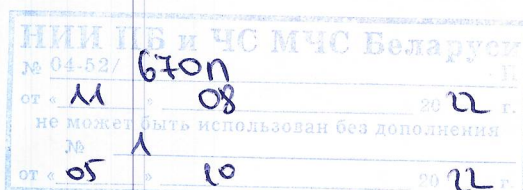 НИИ ПБ и ЧС МЧС Беларуси
№ 04-52/ 670п
от « 11 » 08 2022 г.
не может быть использован без дополнения
№ 1
от « 05 » 10 2022 г.